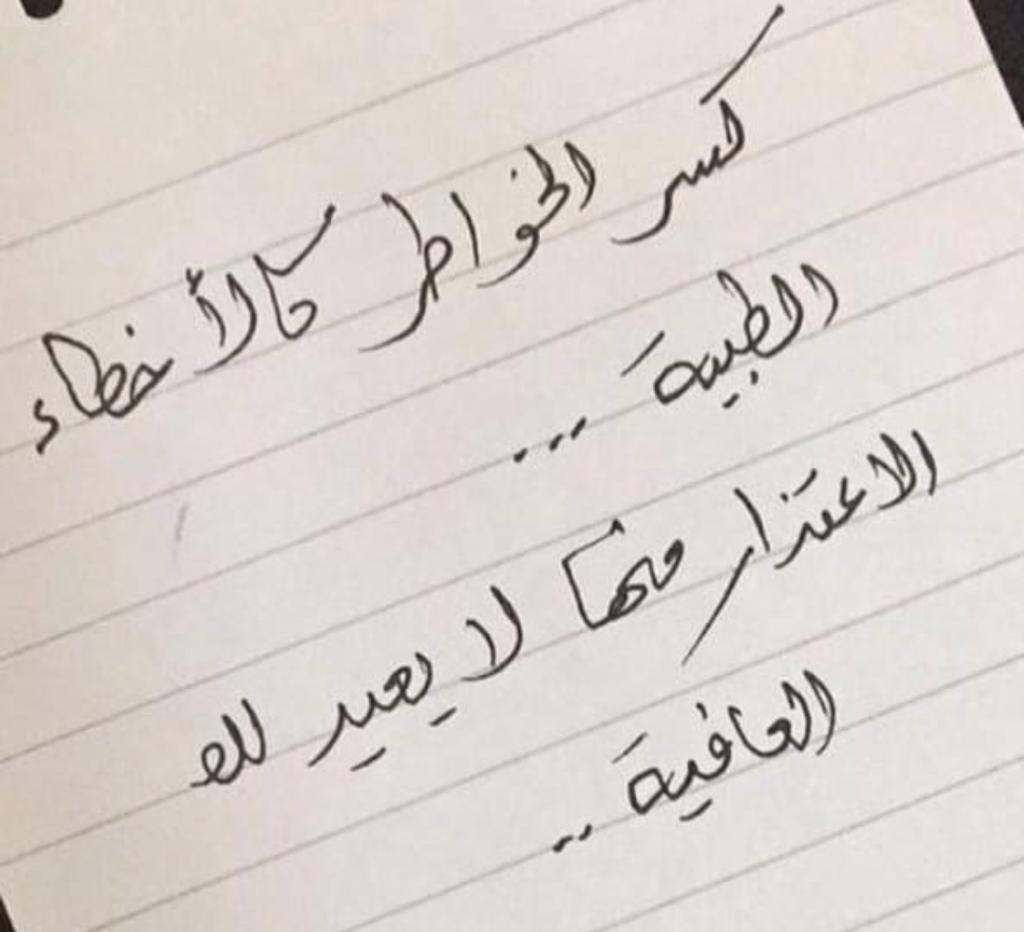 كسر الخواطر كالأخطاء
الطبية ...
الاعتذار منها لا يعيد لك
العافية ..